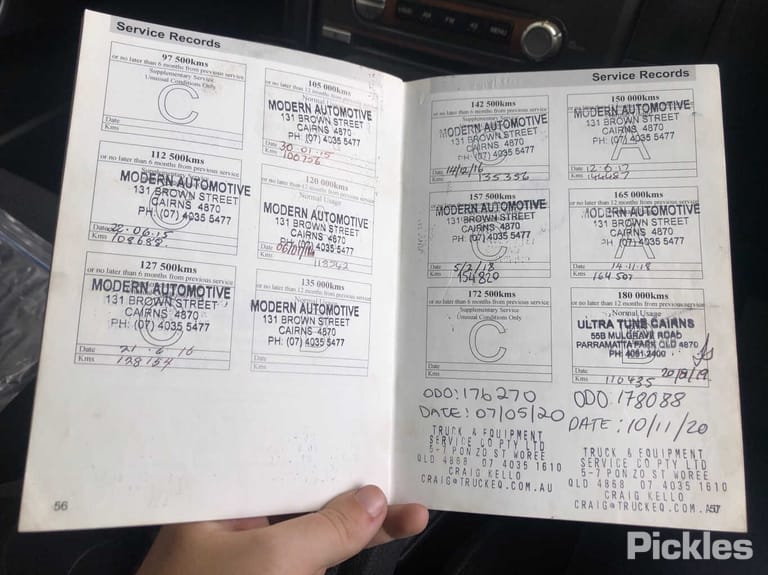 Service Records
97 500kms
or no later than 6 months from previous service
Supplementary Service
Unusual Conditions Only
C
Date
Kms
105 000kms
or no later than 12 months from previous
Normal
MODERN AUTOMOTIVE
131 BROWN STREET
CAIRNS 4870
PH: (07) 4035 5477
Date 30.01.15
Kms 100756
112 500kms
or no later than 6 months from previous service
MODERN AUTOMOTIVE
131 BROWN STREET
CAIRNS 4870
PH: (07) 4035 5477
Date 22.06.15
Kms 108688
120 000kms
or no later than 12 months from previous
Normal Usage
MODERN AUTOMOTIVE
131 BROWN STREET
CAIRNS 4870
PH: (07) 4035 5477
Date
Kms
127 500kms
or no later than 6 months from previous service
MODERN AUTOMOTIVE
131 BROWN STREET
CAIRNS 4870
PH: (07) 4035 5477
Date 21 6 16
Kms
135 000kms
or no later than 12 months from previous
MODERN AUTOMOTIVE
131 BROWN STREET
CAIRNS 4870
PH: (07) 4035 5477
Date
Kms
56
Service Records
142 500kms
or no later than 6 months from previous service
Supplementary Service
MODERN AUTOMOTIVE
131 BROWN STREET
CAIRNS 4870
PH: (07) 4035 5477
Date 14/12/16
Kms 155356
150 000kms
or no later than 12 months from previous service
MODERN AUTOMOTIVE
131 BROWN STREET
CAIRNS 4870
PH: (07) 4035 5477
A
Date 12.6.17
Kms
157 500kms
or no later than 6 months from previous service
MODERN AUTOMOTIVE
131 BROWN STREET
CAIRNS 4870
PH: (07) 4035 5477
C
Date 5/2/18
Kms 154800
165 000kms
or no later than 12 months from previous service
MODERN AUTOMOTIVE
131 BROWN STREET
CAIRNS 4870
PH: (07) 4035 5477
A
Date 14.11.18
Kms 164507
172 500kms
or no later than 6 months from previous service
Supplementary Service
Unusual Conditions Only
C
Date
Kms
180 000kms
or no later than 12 months from previous service
Normal Usage
ULTRA TUNE CAIRNS
55B MULGRAVE ROAD
PARRAMATTA PARK QLD 4870
PH: 4051 2400
Date
Kms
ODO: 176270
DATE: 07/05/20
TRUCK & EQUIPMENT
SERVICE CO PTY LTD
5-7 PONZO ST WOREE
QLD 4868 07 4035 1610
CRAIG KELLO
CRAIG@TRUCKEQ.COM.AU
ODO 178088
DATE: 10/11/20
TRUCK & EQUIPMENT
SERVICE CO PTY LTD
5-7 PONZO ST WOREE
QLD 4868 07 4035 1610
CRAIG KELLO
CRAIG@TRUCKEQ.COM.AU
57
FM
MENU
Pickles